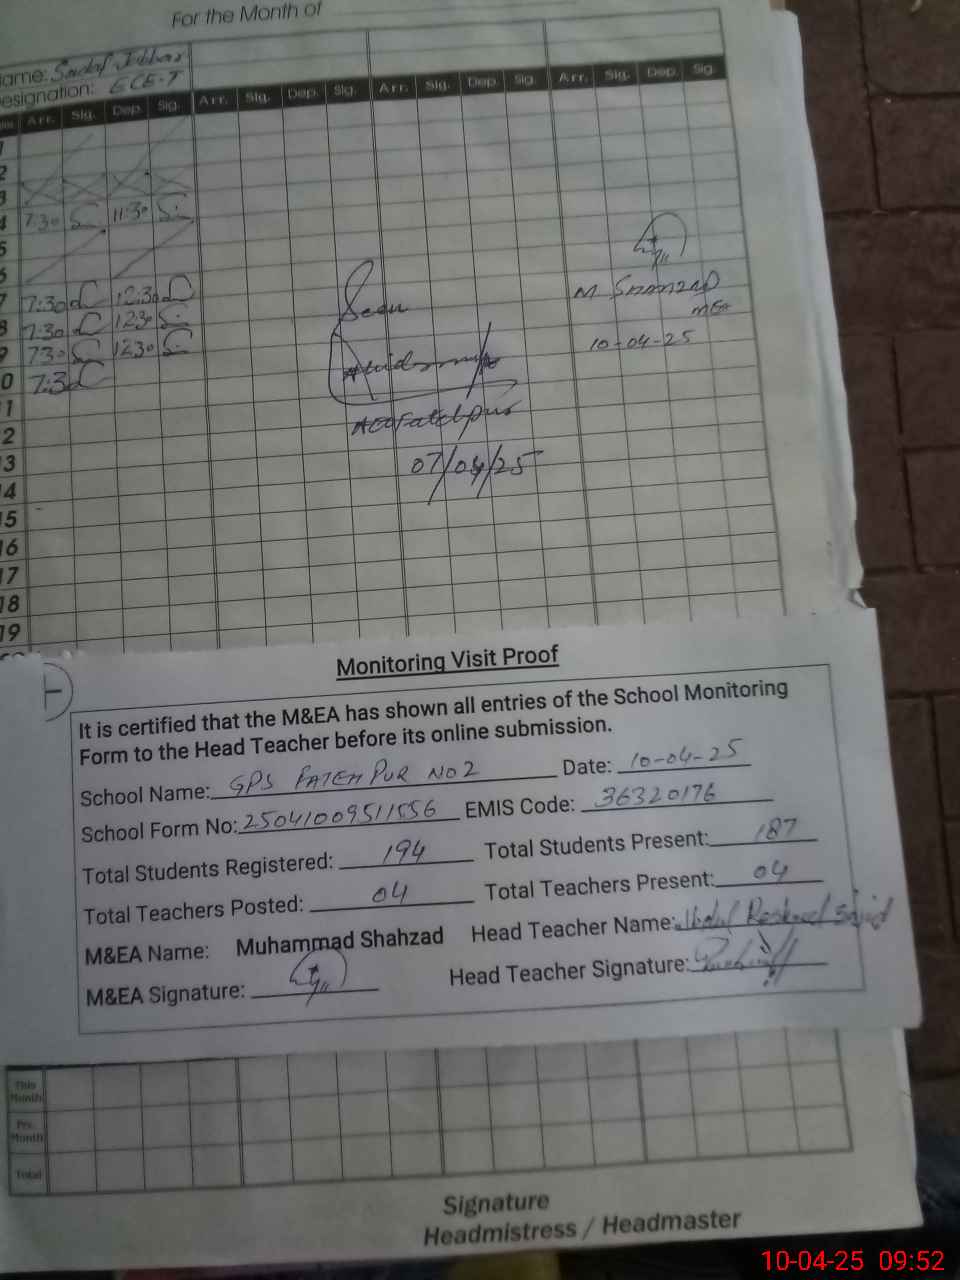 For the Month of
Name: Sadaf Jabbar
Designation: ECE-T
Arr. Sig. Dep. Sig. Arr. Sig. Dep. Sig. Arr. Sig. Dep. Sig. Arr. Sig. Dep. Sig.
1
2
3
4 7:30 S. 11:30 S.
5
6
7 7:30 12:30
8 7:30 12:30 S.
9 7:30 S 12:30 S.
0 7:30
11
12
13
14
15
16
17
18
19
Seen
AEO Fatehpur
07/04/25
M Shahzad
MEA
10-04-25
Monitoring Visit Proof
It is certified that the M&EA has shown all entries of the School Monitoring
Form to the Head Teacher before its online submission.
School Name: GPS FATEH PUR NO 2 Date: 10-04-25
School Form No: 25041009511556 EMIS Code: 36320176
Total Students Registered: 194 Total Students Present: 187
Total Teachers Posted: 04 Total Teachers Present: 04
M&EA Name: Muhammad Shahzad Head Teacher Name: Sajid
M&EA Signature: Head Teacher Signature:
This
Month
Pre.
Month
Total
Signature
Headmistress / Headmaster
10-04-25 09:52